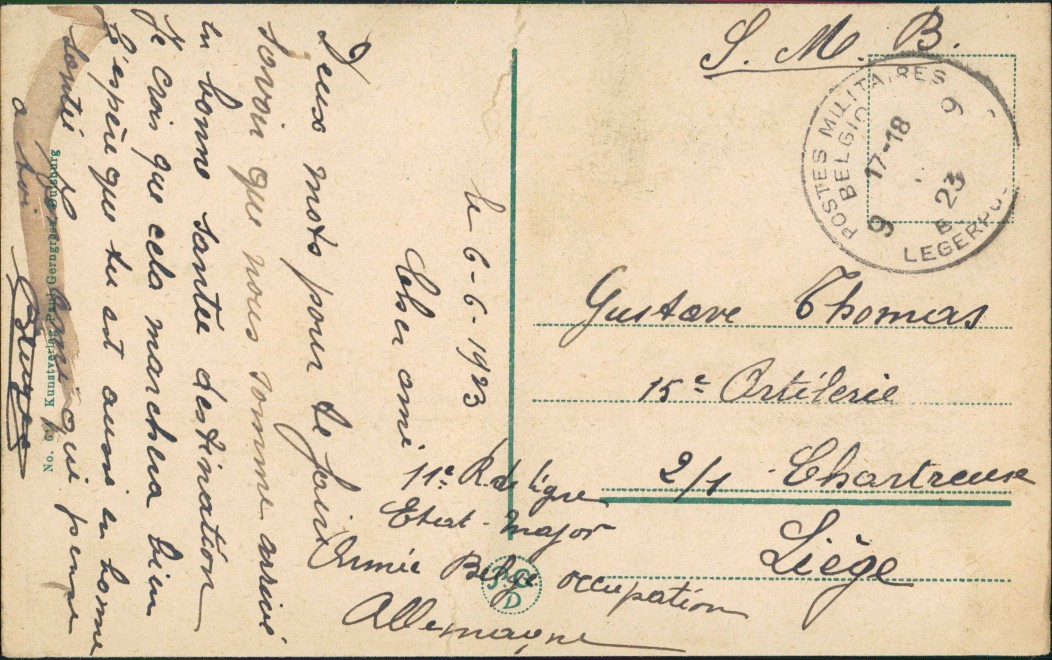 S. M. B.
POSTES MILITAIRES
BELGIQ
17-18
9
9
23
LEGERPOS
Gustave Thomas
15e Artilerie
2/1 Chartreuse
Liège
le 6-6-1923
Cher ami
Deux mots pour te faire
savoir que nous somme arrivé
en bonne santée destination
Je crois que cela marchera bien
J'espère que tu est aussi en bonne
santée
ami qui pense
a toi
11e R. de ligne
Etat-major
Armée Belge occupation
Allemagne
Kunstverlag Paul Gerngross Duisburg